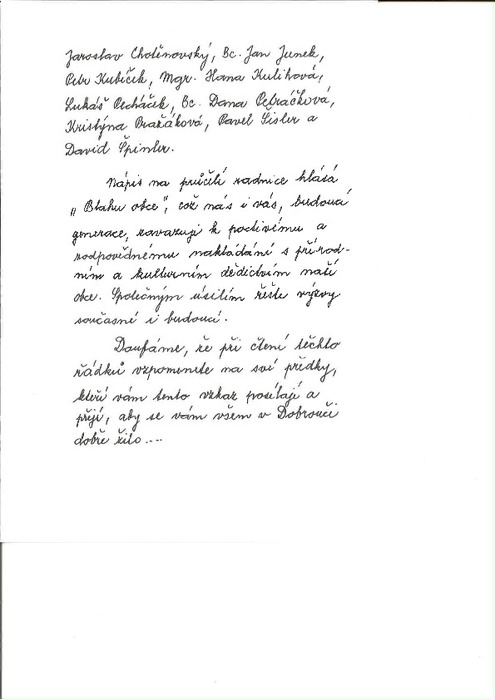 Jaroslav Cholěnovský, Bc. Jan Junek,
Petr Kubíček, Mgr. Hana Kulihová,
Lukáš Pecháček, Bc. Dana Petráčková,
Kristýna Pražáková, Pavel Šisler a
David Špinler.
Nápis na průčelí radnice hlásá
„Blahu obce", což nás i vás, budoucí
generace, zavazují k poctivému a
zodpovědnému nakládání s přírod-
ním a kulturním dědictvím naší
obce. Společným úsilím řešte výzvy
současné i budoucí.
Doufáme, že při čtení těchto
řádků vzpomenete na své předky,
kteří vám tento vzkaz posílají a
přejí, aby se vám všem v Dobrouči
dobře žilo....